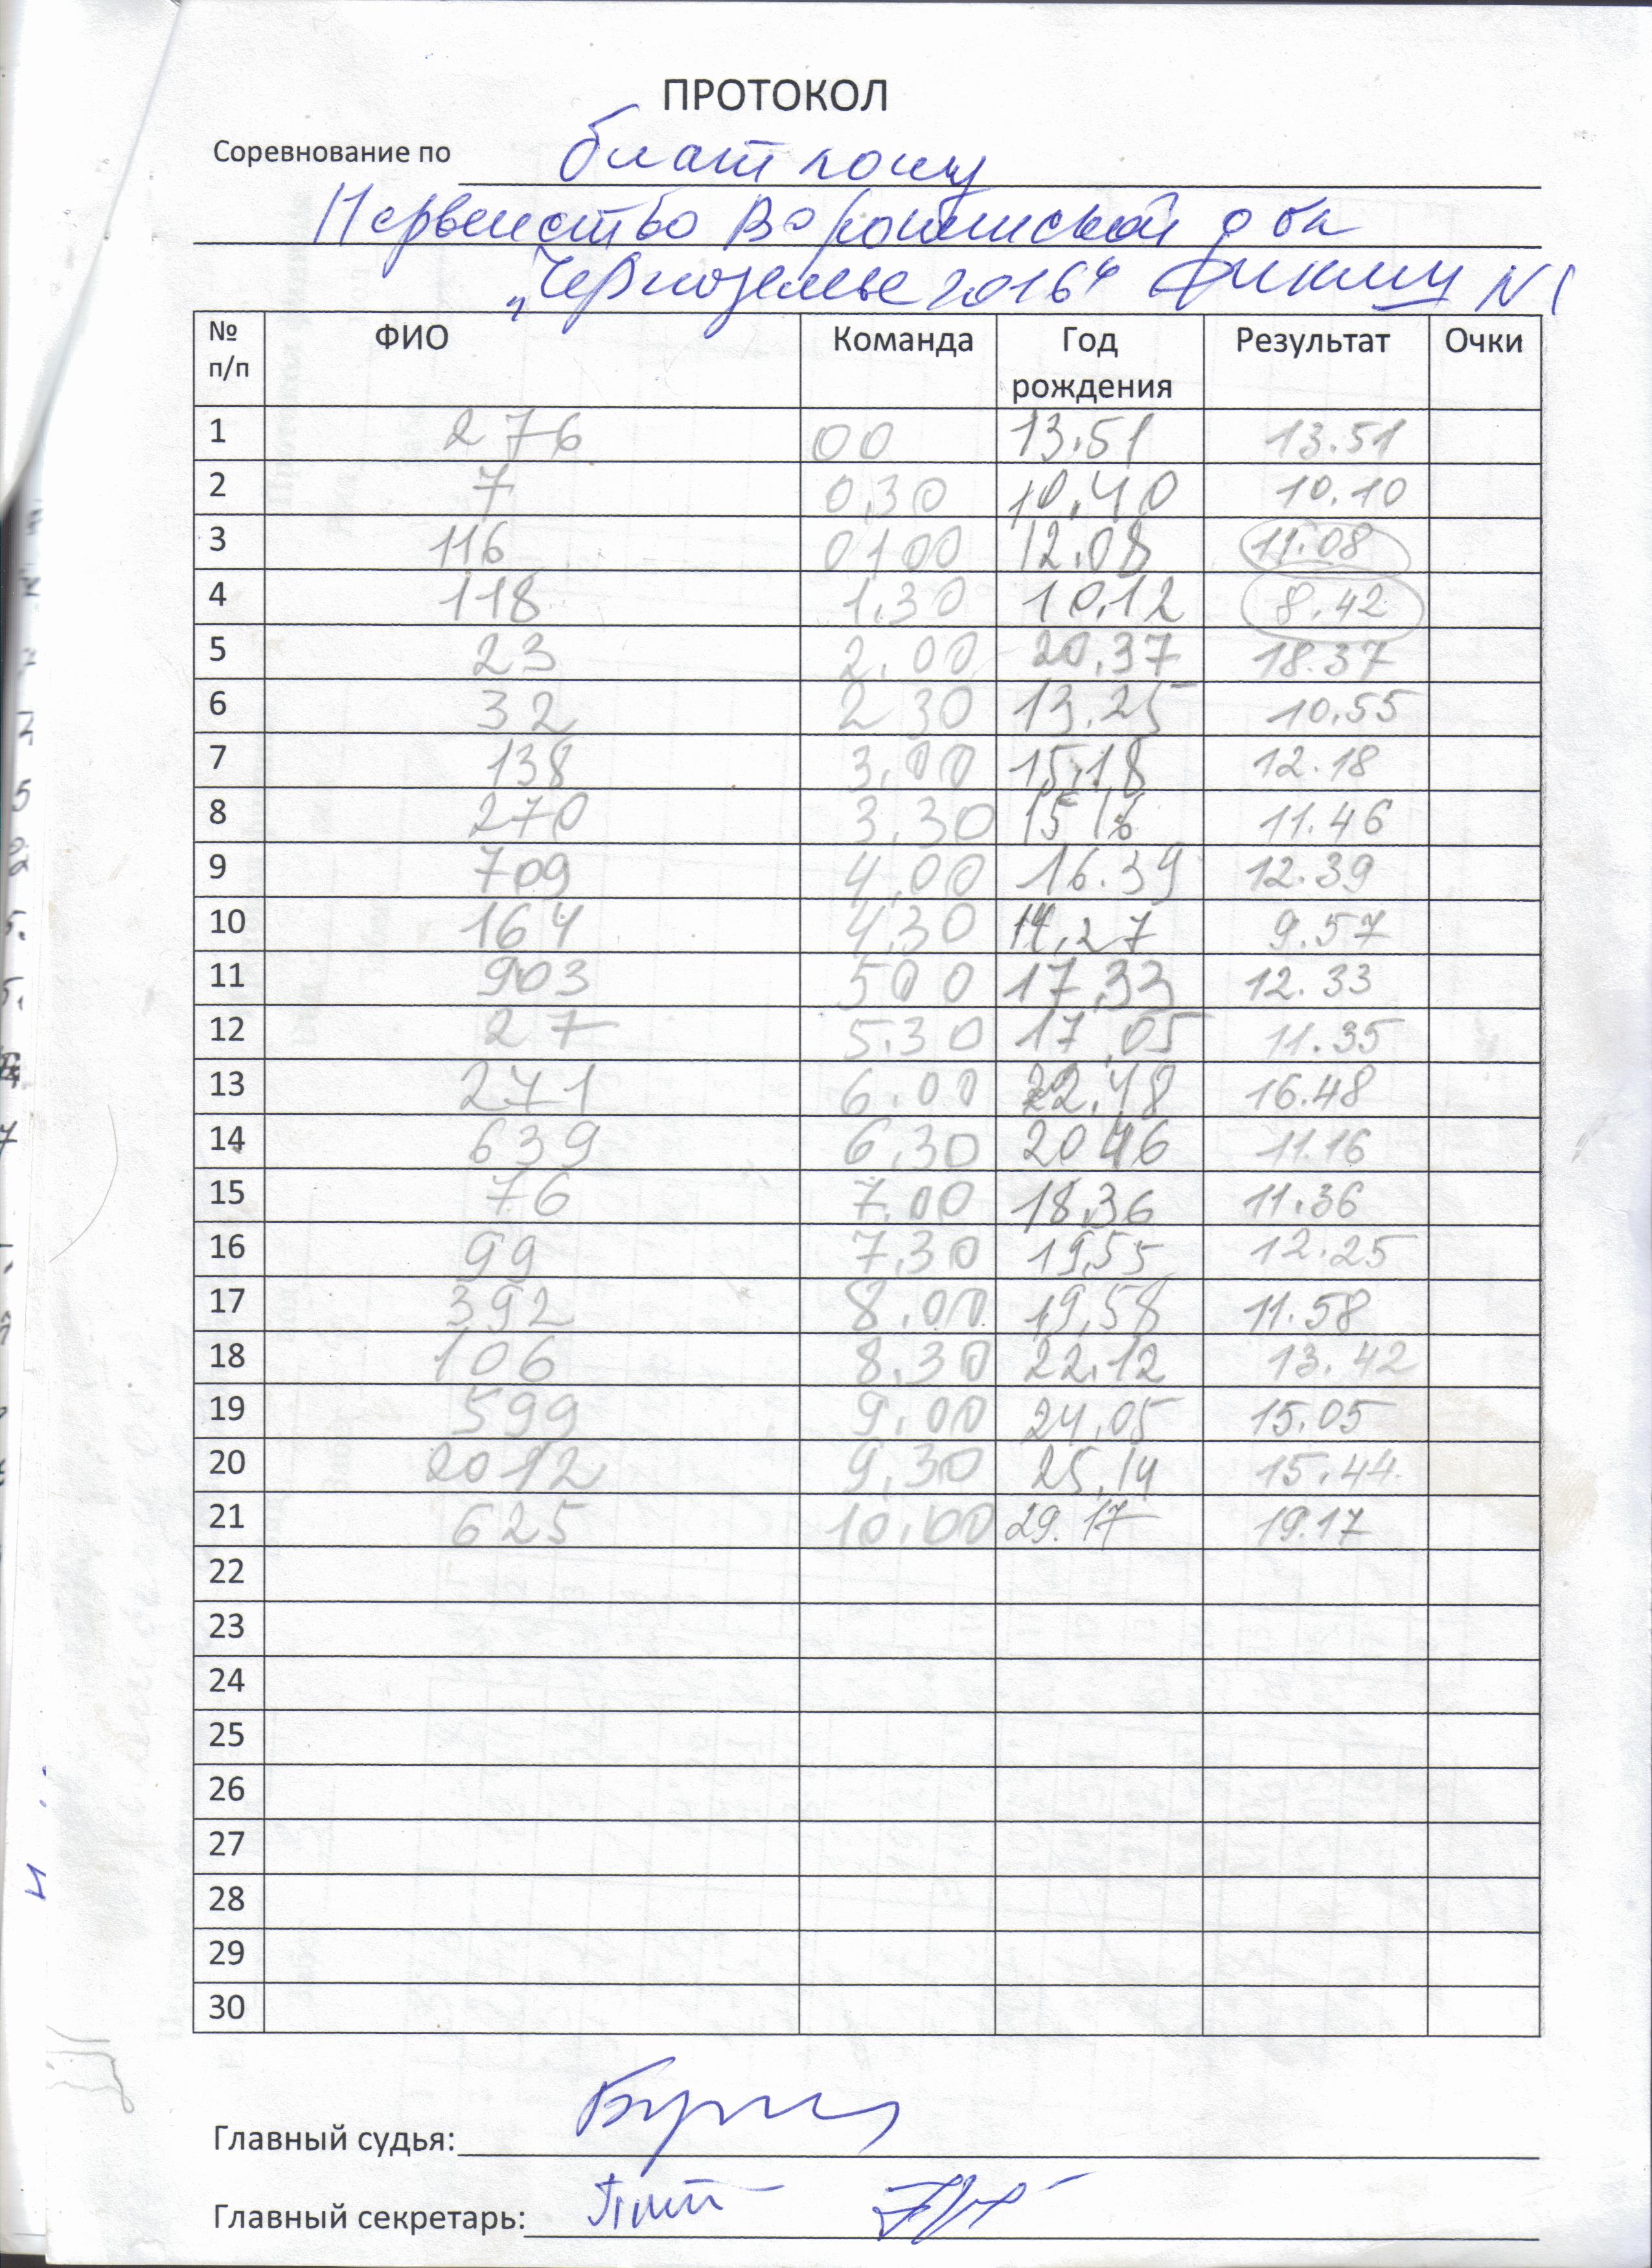 ПРОТОКОЛ
Соревнование по биатлону
Первенство Воронежской обл
„Черноземье 2016" Финиш N1
№ п/п ФИО Команда Год рождения Результат Очки
1 276 00 13.51 13.51
2 7 0,30 10,40 10.10
3 116 0100 12.08 11.08
4 118 1.30 10.12 8.42
5 23 2.00 20.37 18.37
6 32 2 30 13.25 10.55
7 138 3.00 15.18 12.18
8 270 3.30 15 16 11.46
9 709 4,00 16.39 12.39
10 164 4,30 14,27 9.57
11 903 500 17,33 12.33
12 27 5.30 17,05 11.35
13 271 6.00 22.48 16.48
14 639 6,30 20 46 11.16
15 76 7.00 18,36 11.36
16 99 7,30 19,55 12.25
17 392 8.00 19,58 11.58
18 106 8,30 22.12 13.42
19 599 9.00 24.05 15.05
20 2012 9,30 25,14 15.44
21 625 10.00 29.17 19.17
22
23
24
25
26
27
28
29
30
Главный судья:
Главный секретарь: